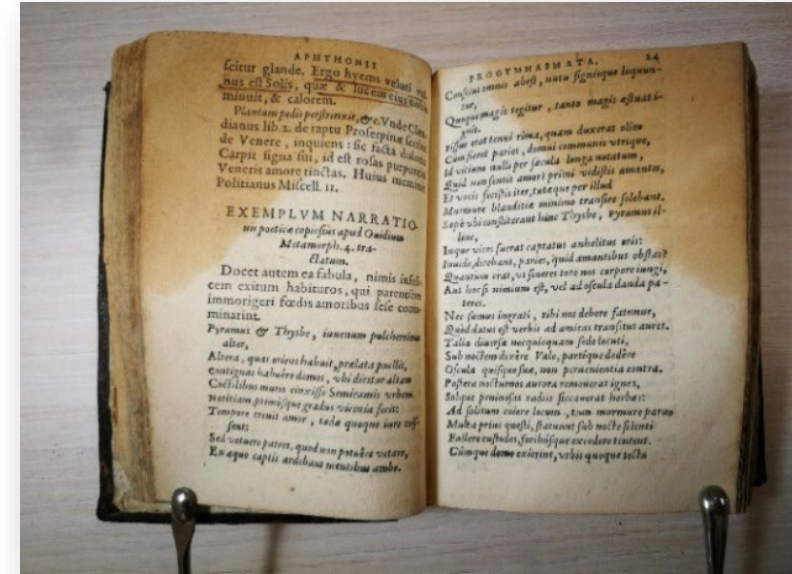 APHTHONII
scitur glande. Ergo hyems veluti vul-
nus est Solis, quæ & lucem eius
minuit, & calorem.
Plantam pedis perstrinxit, &c. Vnde Clau-
dianus lib. 2. de raptu Proserpinæ
de Venere, inquiens: sic facta
Carpit signa sui, id est rosas purpureas
Veneris amore tinctas. Huius meminit
Politianus Miscell. 11.
EXEMPLVM NARRATIO-
nis poeticæ copiosius apud Ouidium
Metamorph. 4. tra-
ctatum.
Docet autem ea fabula, nimis infeli-
cem exitum habituros, qui parentibus
immorigeri fœdis amoribus sese conta-
minarint.
Pyramus & Thysbe, iuuenum pulcherrimus
alter,
Altera, quas oriens habuit, prælata puellis,
Contiguas habuêre domos, vbi dicitur altam
Coctilibus muris cinxisse Semiramis vrbem.
Notitiam primósque gradus vicinia fecit:
Tempore creuit amor, tædæ quoque iure coïs-
sent:
Sed vetuere patres, quod non potuêre vetare,
Ex æquo captis ardebant mentibus ambo.
PROGYMNASMATA. 24
Conscius omnis abest, nutu signisque loquun-
tur,
Quoque magis tegitur, tanto magis æstuat i-
gnis.
Fissus erat tenui rima, quam duxerat olim
Cum fieret paries, domui communis vtrique,
Id vitium nulli per sæcula longa notatum,
Quid non sentit amor? primi vidistis amantes,
Et vocis fecistis iter, tutæque per illud
Murmure blanditiæ minimo transire solebant.
Sæpe vbi constiterant hinc Thysbe, Pyramus il-
linc,
Inque vices fuerat captatus anhelitus oris:
Inuide, dicebant, paries, quid amantibus obstas?
Quantum erat, vt sineres toto nos corpore iungi,
Aut hoc si nimium est, vel ad oscula danda pa-
teres.
Nec sumus ingrati, tibi nos debere fatemur,
Quòd datus est verbis ad amicas transitus aures.
Talia diuersa necquicquam sede locuti,
Sub noctem dixêre Vale, partíque dedêre
Oscula quisque suæ, non peruenientia contra.
Postera nocturnos aurora remouerat ignes,
Solque pruinosas radiis siccauerat herbas:
Ad solitum coiere locum, tum murmure paruo
Multa prius questi, statuunt sub nocte silenti
Fallere custodes, foribúsque excedere tentent.
Cùmque domo exierint, vrbis quoque tecta